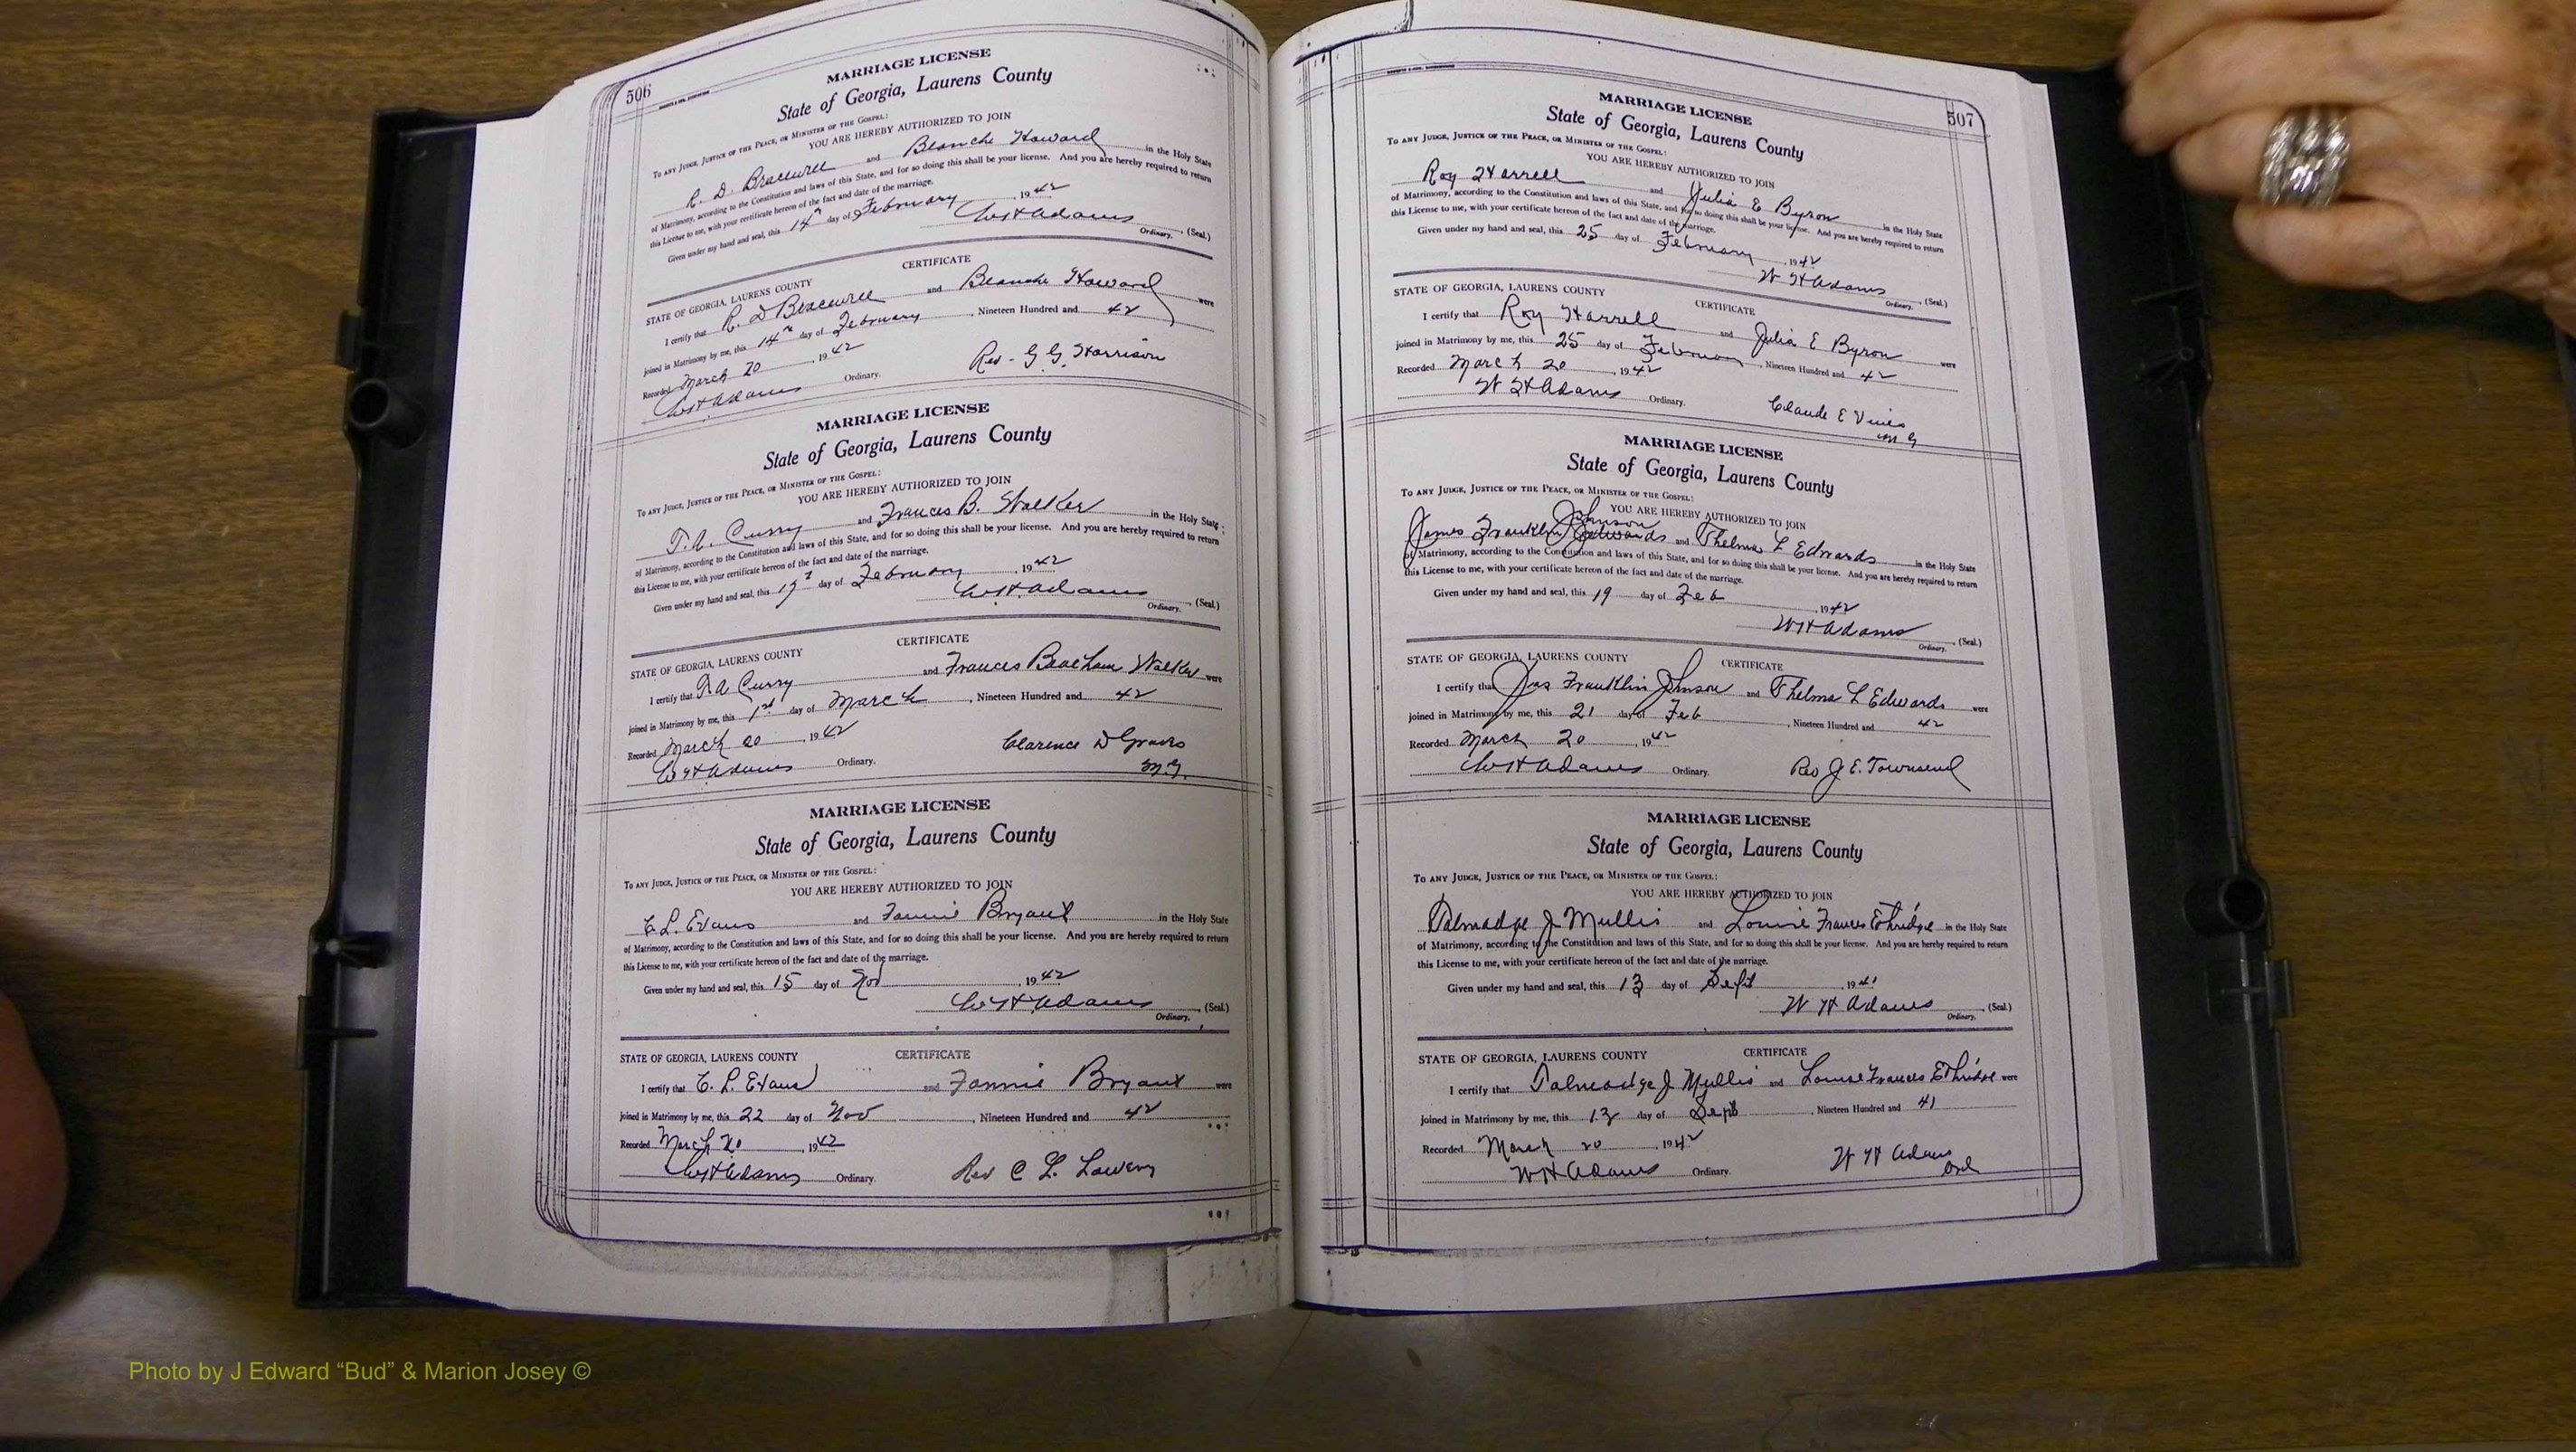 506
MARRIAGE LICENSE
State of Georgia, Laurens County
To ANY JUDGE, JUSTICE OF THE PEACE, OR MINISTER OF THE GOSPEL:
YOU ARE HEREBY AUTHORIZED TO JOIN
R. D. Bracewell and Blanche Howard in the Holy State
of Matrimony, according to the Constitution and laws of this State, and for so doing this shall be your license. And you are hereby required to return
this License to me, with your certificate hereon of the fact and date of the marriage.
Given under my hand and seal, this 14th day of February, 1942
W H Adams (Seal.)
Ordinary.
CERTIFICATE
STATE OF GEORGIA, LAURENS COUNTY
I certify that R. D Bracewell and Blanche Howard were
joined in Matrimony by me, this 14th day of February, Nineteen Hundred and 42
Recorded March 20, 1942
W H Adams Ordinary. Rev - G G. Harrison
MARRIAGE LICENSE
State of Georgia, Laurens County
To ANY JUDGE, JUSTICE OF THE PEACE, OR MINISTER OF THE GOSPEL:
YOU ARE HEREBY AUTHORIZED TO JOIN
T. A. Curry and Frances B. Walker in the Holy State
of Matrimony, according to the Constitution and laws of this State, and for so doing this shall be your license. And you are hereby required to return
this License to me, with your certificate hereon of the fact and date of the marriage.
Given under my hand and seal, this day of February, 1942
W. H. Adams (Seal.)
Ordinary.
CERTIFICATE
STATE OF GEORGIA, LAURENS COUNTY
I certify that T. A Curry and Frances Walker were
joined in Matrimony by me, this 1st day of March, Nineteen Hundred and 42
Recorded March 20, 1942
Clarence D Graves
W H Adams Ordinary. M.G.
MARRIAGE LICENSE
State of Georgia, Laurens County
To ANY JUDGE, JUSTICE OF THE PEACE, OR MINISTER OF THE GOSPEL:
YOU ARE HEREBY AUTHORIZED TO JOIN
C. L. Evans and Fannie Bryant in the Holy State
of Matrimony, according to the Constitution and laws of this State, and for so doing this shall be your license. And you are hereby required to return
this License to me, with your certificate hereon of the fact and date of the marriage.
Given under my hand and seal, this 15 day of Nov, 1942
W H Adams (Seal.)
Ordinary.
STATE OF GEORGIA, LAURENS COUNTY CERTIFICATE
I certify that C. L. Evans and Fannie Bryant were
joined in Matrimony by me, this 22 day of Nov, Nineteen Hundred and 42
Recorded March 20, 1942
W H Adams Ordinary. Rev C L. Lowery
507
MARRIAGE LICENSE
State of Georgia, Laurens County
To ANY JUDGE, JUSTICE OF THE PEACE, OR MINISTER OF THE GOSPEL:
YOU ARE HEREBY AUTHORIZED TO JOIN
Roy Harrell and Julia E Byron in the Holy State
of Matrimony, according to the Constitution and laws of this State, and for so doing this shall be your license. And you are hereby required to return
this License to me, with your certificate hereon of the fact and date of the marriage.
Given under my hand and seal, this 25 day of February, 1942
W H Adams (Seal.)
Ordinary.
STATE OF GEORGIA, LAURENS COUNTY CERTIFICATE
I certify that Roy Harrell and Julia E Byron were
joined in Matrimony by me, this 25 day of February, Nineteen Hundred and 42
Recorded March 20, 1942
W H Adams Ordinary. Claude E Vines
M G
MARRIAGE LICENSE
State of Georgia, Laurens County
To ANY JUDGE, JUSTICE OF THE PEACE, OR MINISTER OF THE GOSPEL:
YOU ARE HEREBY AUTHORIZED TO JOIN
Johnson
James Franklin Edwards and Thelma L Edwards in the Holy State
of Matrimony, according to the Constitution and laws of this State, and for so doing this shall be your license. And you are hereby required to return
this License to me, with your certificate hereon of the fact and date of the marriage.
Given under my hand and seal, this 19 day of Feb, 1942
W H Adams (Seal.)
Ordinary.
STATE OF GEORGIA, LAURENS COUNTY CERTIFICATE
I certify that Jas Franklin Johnson and Thelma L Edwards were
joined in Matrimony by me, this 21 day of Feb, Nineteen Hundred and 42
Recorded March 20, 1942
W H Adams Ordinary. Rev J E. Townsend
MARRIAGE LICENSE
State of Georgia, Laurens County
To ANY JUDGE, JUSTICE OF THE PEACE, OR MINISTER OF THE GOSPEL:
YOU ARE HEREBY AUTHORIZED TO JOIN
Talmadge J Mullis and Louise Frances Ethridge in the Holy State
of Matrimony, according to the Constitution and laws of this State, and for so doing this shall be your license. And you are hereby required to return
this License to me, with your certificate hereon of the fact and date of the marriage.
Given under my hand and seal, this 13 day of Sept, 1941
W H Adams (Seal.)
Ordinary.
STATE OF GEORGIA, LAURENS COUNTY CERTIFICATE
I certify that Talmadge J Mullis and Louise Frances Ethridge were
joined in Matrimony by me, this 13 day of Sept, Nineteen Hundred and 41
Recorded March 20, 1942
W H Adams Ordinary. W H Adams
Ord
Photo by J Edward “Bud” & Marion Josey ©